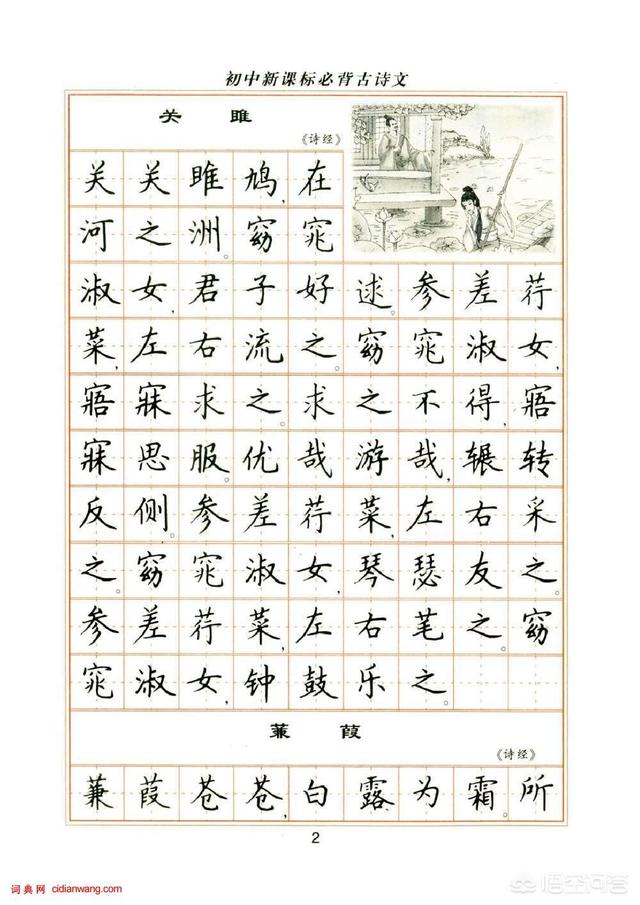 初中新课标必背古诗文
关 雎
《诗经》
关关雎鸠,在
河之洲。窈窕
淑女,君子好逑。参差荇
菜,左右流之。窈窕淑女,
寤寐求之。求之不得,寤
寐思服。优哉游哉,辗转
反侧。参差荇菜,左右采
之。窈窕淑女,琴瑟友之。
参差荇菜,左右芼之。窈
窕淑女,钟鼓乐之。
蒹 葭
《诗经》
蒹葭苍苍,白露为霜。所
2
词典网 cidianwang.com
悟空问答